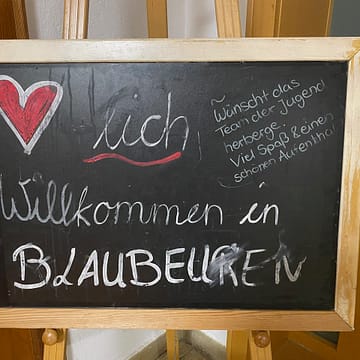 lich
Willkommen in
BLAUBEUREN
Wünscht das
Team der Jugend
herberge.
Viel Spaß & einen
schönen Aufenthal